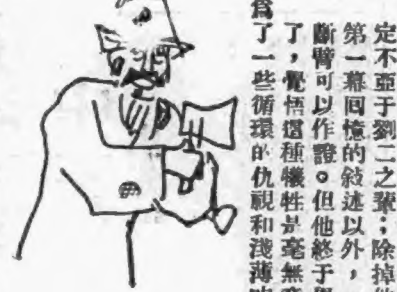 定不亞于劉二之輩；除掉
第一幕回憶的敍述以外，
斷臂可以作證。但他終于
了，覺悟這種犧牲是毫無
了一些循環的仇視和淺薄
爲